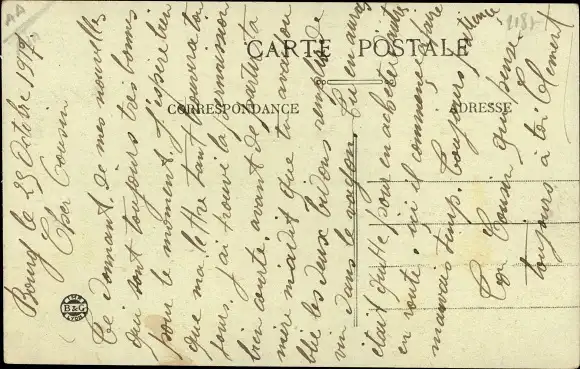 CARTE POSTALE
CORRESPONDANCE
ADRESSE
1188
AA
Bourg le 23 Octobre 1917
Cher Cousin
Te donnant de mes nouvelles
qui sont toujours très bonnes
pour le moment, j'espère bien
que ma lettre t'en
jour. J'ai trouvé la permission
bien courte, avant de partir ta
mère m'a dit que tu avais ou
blié les deux bidons remplis de
vin dans le wagon. Tu en auras
était quitte pour en acheter d'autres
en route, ici il commence à faire
mauvais temps. Toujours patience
Ton Cousin qui pense
toujours à toi Clément
IMP.
B & G
LYON